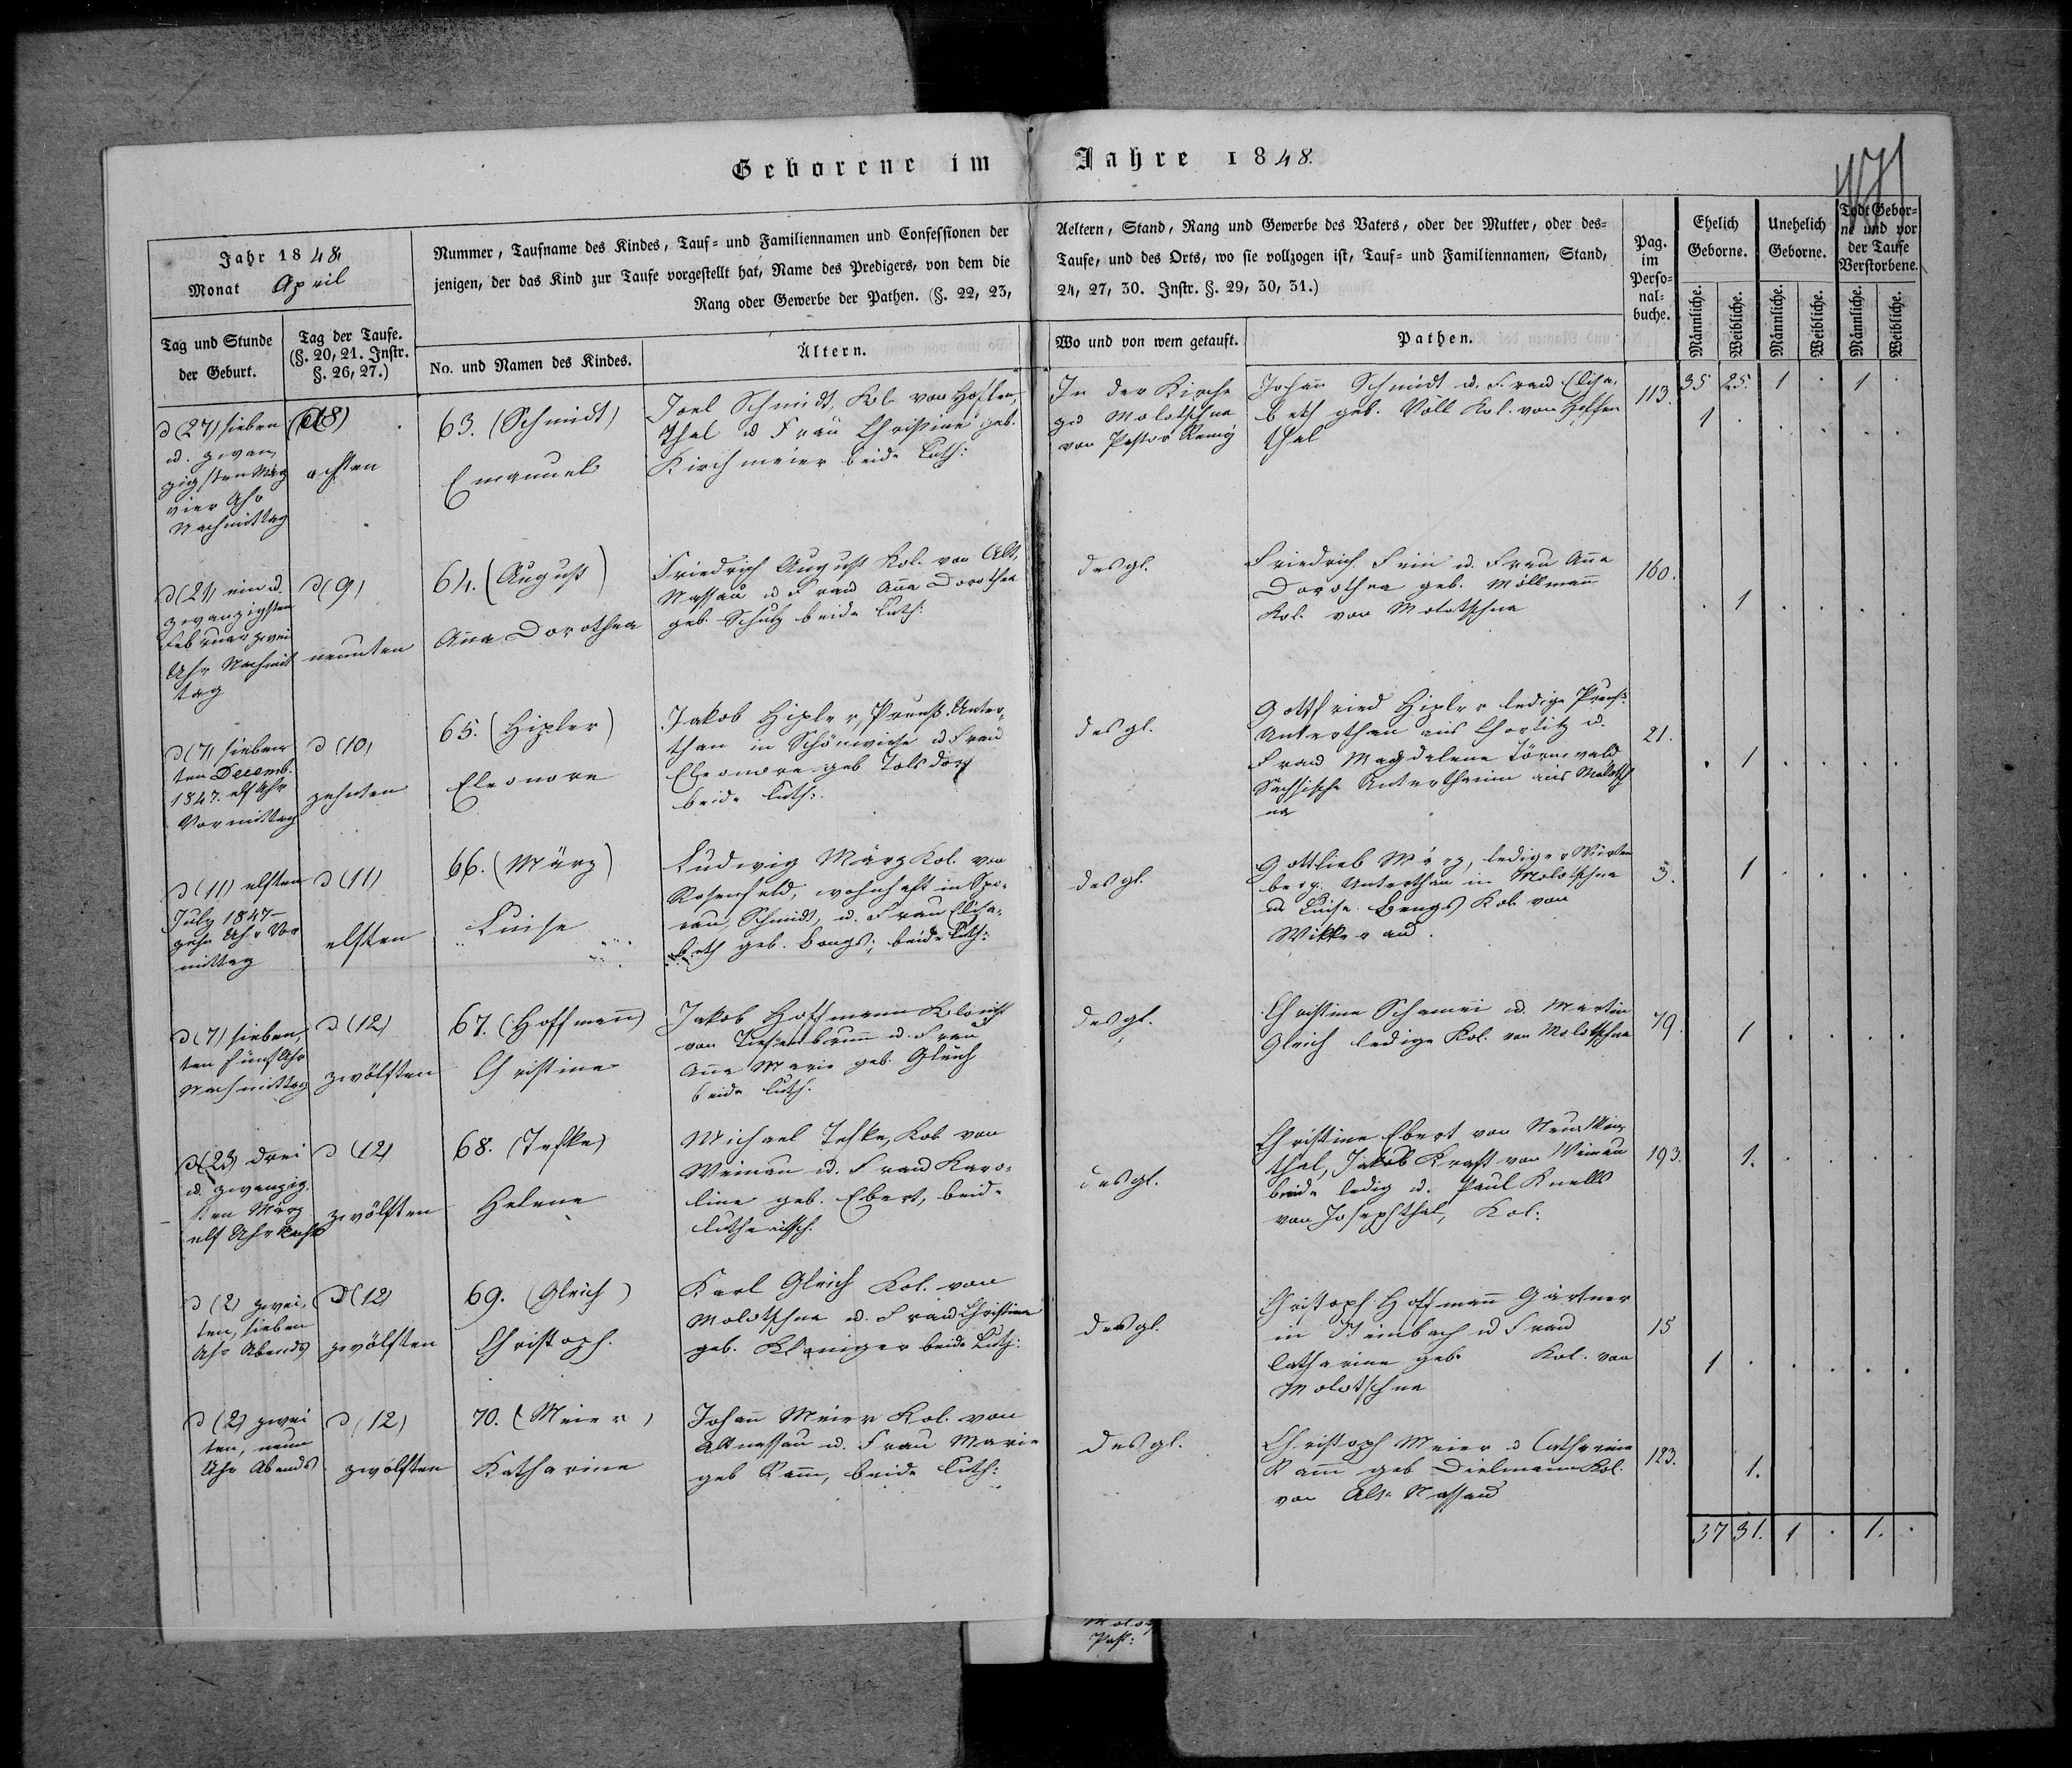 Geborene im Jahre 1848.
Jahr 1848
Monat April
Nummer, Taufname des Kindes, Tauf- und Familiennamen und Confessionen der
jenigen, der das Kind zur Taufe vorgestellt hat, Name des Predigers, von dem die
Rang oder Gewerbe der Pathen. (§. 22, 23,
Aeltern, Stand, Rang und Gewerbe des Vaters, oder der Mutter, oder des-
Taufe, und des Orts, wo sie vollzogen ist, Tauf- und Familiennamen, Stand,
24, 27, 30. Instr. §. 29, 30, 31.)
Pag.
im
Perso-
nal-
buche.
Ehelich
Geborne.
Unehelich
Geborne.
Todt Gebor-
ne und vor
der Taufe
Verstorbene.
Männliche.
Weibliche.
Männliche.
Weibliche.
Männliche.
Weibliche.
Tag und Stunde
der Geburt.
Tag der Taufe.
(§. 20, 21. Instr.
§. 26, 27.)
No. und Namen des Kindes.
Ältern.
Wo und von wem getauft.
Pathen.
35 25. 1 . 1 .
d (27) sieben
u. zwan
zigsten März
vier Uhr
Nachmittag
achten
63. (Schmidt)
Emanuel
Joel Schmidt, Kol. von
thal u Frau Christine geb.
Kirchmeier beide Luth:
In der Kirche
zu Molotschna
von Pastor
Johann Schmidt u. Frau Elisa,
beth geb. Völl Kol. von
thal
113.
1 . . . . .
d (21) ein u.
zwanzigsten
Februar zwei
Uhr Nachmit
tag
d (9)
neunten
64. (August)
Anna Dorothea
Friedrich August Kol. von Alt,
Nassau u Frau Anna Dorothea
geb. Schulz beide Luth:
desgl.
Friedrich Fein u. Frau Anna
Dorothea geb. Möllmann
Kol. von Molotschna
160.
. 1 . . . .
d (7) sieben
ten Decemb.
1847. elf Uhr
Vormittag
d (10)
zehnten
65. (Hipler)
Eleonore
Jakob Hipler, Preuß. Unter,
than in Schönwiese u Frau
Eleonore geb Tolsdorf
beide luth:
desgl.
Gottfried Hipler ledige Preuß:
Unterthan aus Chortitz u.
Frau Magdalena
Sächsische Unterthanin aus Molotsch
na
21.
. 1 . . . .
d (11) elften
July 1847
zehn Uhr Vor
mittag
d (11)
elften
66. (März)
Luise
Ludwig März Kol. von
Rosenfeld, wohnhaft in
Schmidt, u. Frau Elisa,
beth geb. beide Luth:
desgl.
Gottlieb März, lediger Würtem
berg. Unterthan in Molotschna
u Luise Kol. von
3.
1 . . . .
d (7) sieben,
ten fünf Uhr
Nachmittag
d. (12)
zwölften
67. (Hoffmann)
Christine
Jakob Hoffmann Kolonist
von Tiefenbrunn u. Frau
Anna Marie geb. Gleich
beide luth.
desgl.
Christine u. Martin
Gleich ledige Kol. von Molotschna
79.
1 . . . .
d (23) drei
u. zwanzig
sten März
elf Uhr Nachts
d (12)
zwölften
68. (Teske)
Helene
Michael Teske, Kol. von
Weinau u. Frau Karo,
line geb. Ebert, beide
lutherisch.
desgl.
Christine Ebert von
thal, Jakob Kraft von Weinau
beide ledig u. Paul
von Josephthal, Kol:
193.
1. . . . .
d (2) zwei,
ten, sieben
Uhr Abends
d (12)
zwölften
69. (Gleich)
Christoph.
Karl Gleich Kol. von
Molotschna u. Frau Christine
geb. beide Luth:
desgl.
Christoph Hoffmann Gärtner
in Steinbach u Frau
Catharina geb. Kol. von
Molotschna
15
1 . . . . .
d (2) zwei
ten, neun
Uhr Abends
d (12)
zwölften
70. (Meier)
Katharine
Johann Meier Kol. von
Altnassau u. Frau Marie
geb Ramm, beide Luth:
desgl.
Christoph Meier u Catharina
Ramm geb Dielmann Kol.
von Alt Nassau
123.
1.
37 31. 1 . 1. .